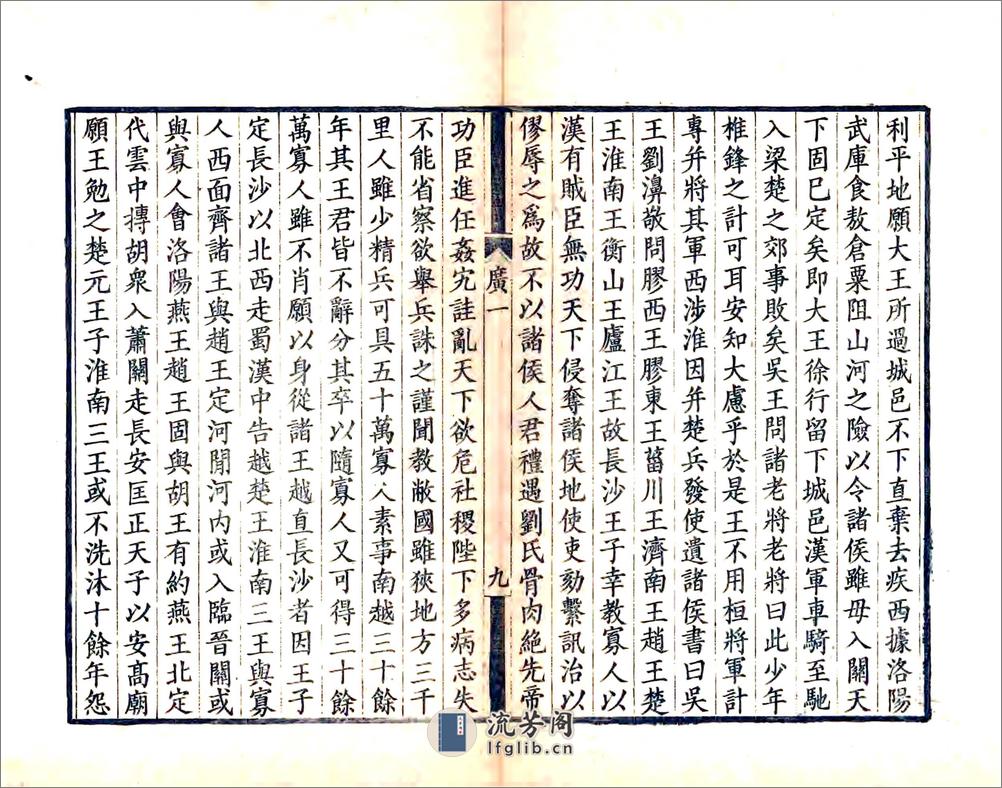 利平地願大王所過城邑不下直棄去疾西據洛陽
武庫食敖倉粟阻山河之險以令諸侯雖毋入關天
下固已定矣即大王徐行留下城邑漢軍車騎至馳
入梁楚之郊事敗矣吳王問諸老將老將曰此少年
椎鋒之計可耳安知大慮乎於是王不用桓將軍計
專并將其軍西涉淮因并楚兵發使遺諸侯書曰吳
王劉濞敬問膠西王膠東王菑川王濟南王趙王楚
王淮南王衡山王廬江王故長沙王子幸教寡人以
漢有賊臣無功天下侵奪諸侯地使吏劾繫訊治以
僇辱之爲故不以諸侯人君禮遇劉氏骨肉絶先帝
廣一
九
功臣進任姦宄詿亂天下欲危社稷陛下多病志失
不能省察欲舉兵誅之謹聞教敝國雖狹地方三千
里人雖少精兵可具五十萬寡人素事南越三十餘
年其王君皆不辭分其卒以隨寡人又可得三十餘
萬寡人雖不肖願以身從諸王越直長沙者因王子
定長沙以北西走蜀漢中告越楚王淮南三王與寡
人西面齊諸王與趙王定河閒河内或入臨晉關或
與寡人會洛陽燕王趙王固與胡王有約燕王北定
代雲中摶胡衆入蕭關走長安匡正天子以安高廟
願王勉之楚元王子淮南三王或不洗沐十餘年怨
流芳阁
lfglib.cn